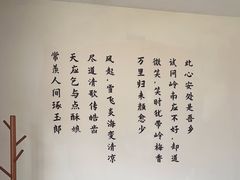 常羡人间琢玉郎
天应乞与点酥娘
尽道清歌传皓齿
风起,雪飞炎海变清凉
万里归来颜愈少
微笑,笑时犹带岭梅香
试问岭南应不好,却道
此心安处是吾乡